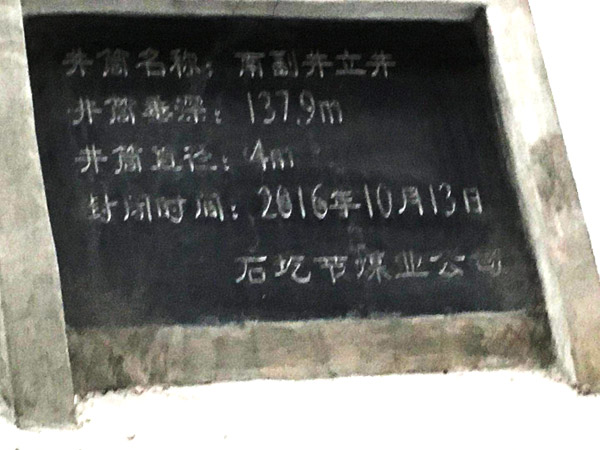 井筒名称：南副井立井
井筒垂深：137.9m
井筒直径：4m
封闭时间：2016年10月13日
石圪节煤业公司